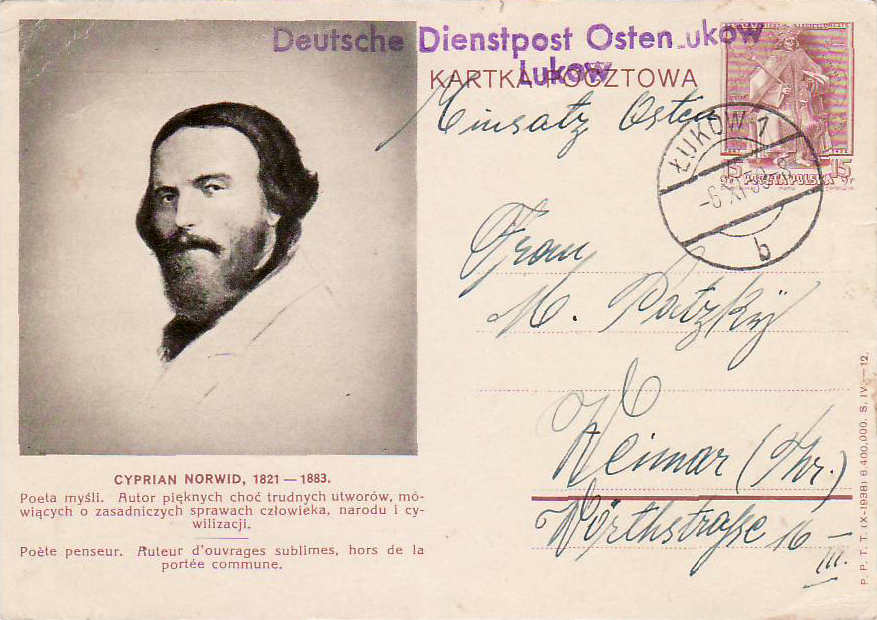 Deutsche Dienstpost Osten ukow
Lukow
KARTKA POCZTOWA
Einsatz Osten
ŁUKOW 1
-6 XI
b
15 15
gr POCZTA POLSKA gr
Frau
M. Patzky
Weimar (Thr.)
Wörthstraße 16 –
III.
CYPRIAN NORWID, 1821 — 1883.
Poeta myśli. Autor pięknych choć trudnych utworów, mó-
wiących o zasadniczych sprawach człowieka, narodu i cy-
wilizacji.
Poète penseur. Auteur d'ouvrages sublimes, hors de la
portée commune.
P. P. T. T. (X-1938) 6.400.000. S. IV. — 12.